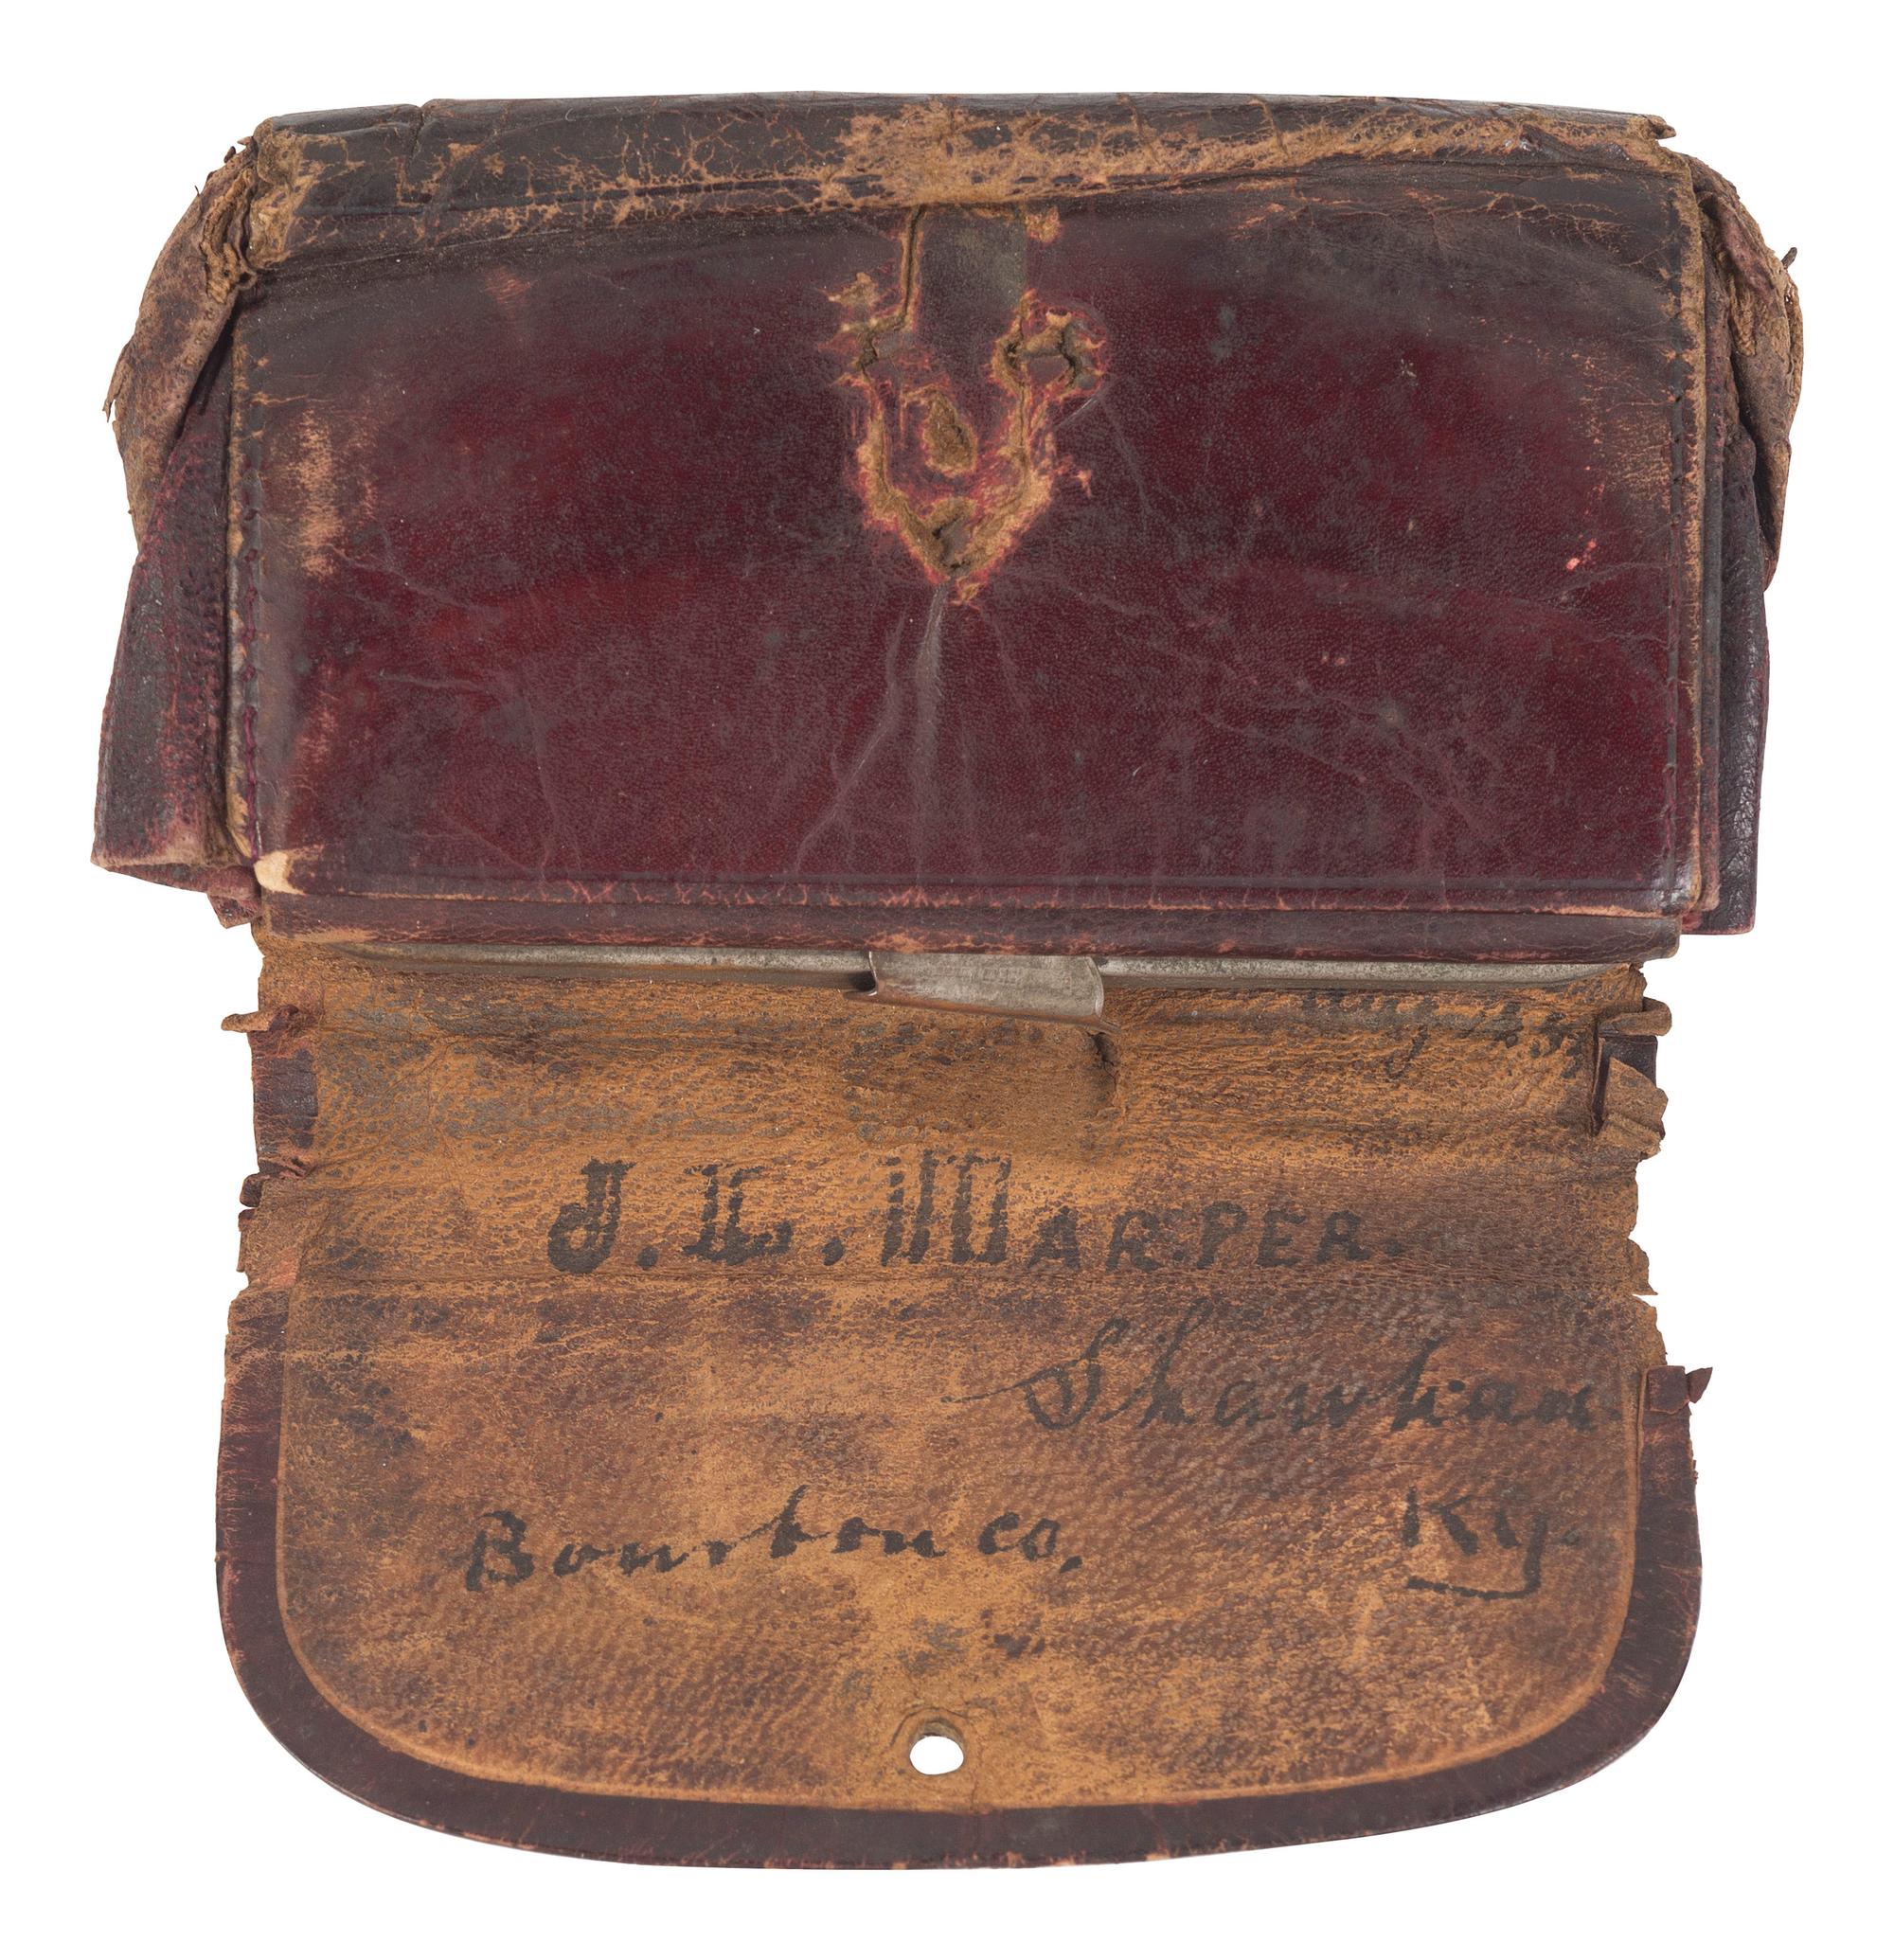 J. L. Harper.
Shawhan
Bourbon co,
Ky.